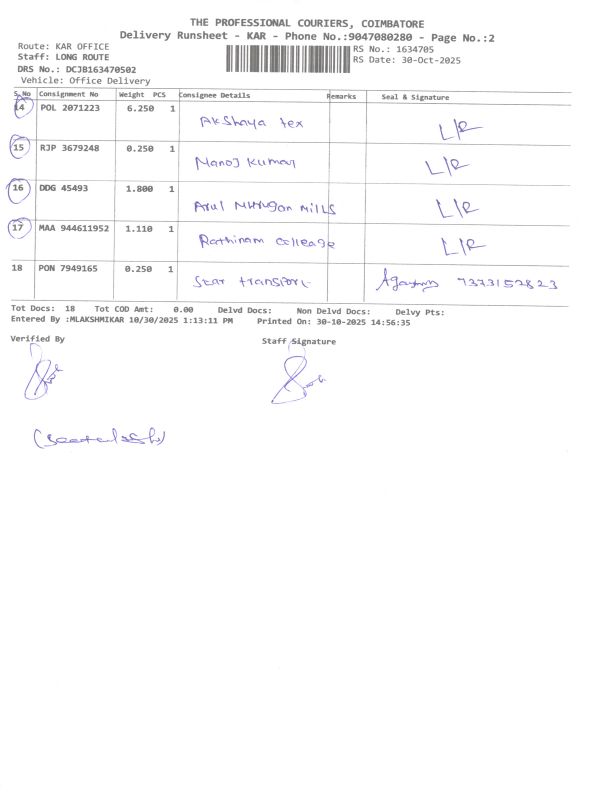 THE PROFESSIONAL COURIERS, COIMBATORE
Delivery Runsheet - KAR - Phone No.:9047080280 - Page No.:2
Route: KAR OFFICE RS No.: 1634705
Staff: LONG ROUTE RS Date: 30-Oct-2025
DRS No.: DCJB163470502
Vehicle: Office Delivery
S.No Consignment No Weight PCS Consignee Details Remarks Seal & Signature
14 POL 2071223 6.250 1
Akshaya tex L/R
15 RJP 3679248 0.250 1
Manoj Kumar L/R
16 DDG 45493 1.800 1
Arul Murugan Mills L/R
17 MAA 944611952 1.110 1
Rathinam College L/R
18 PON 7949165 0.250 1
Star transport 7373152823
Tot Docs: 18 Tot COD Amt: 0.00 Delvd Docs: Non Delvd Docs: Delvy Pts:
Entered By :MLAKSHMIKAR 10/30/2025 1:13:11 PM Printed On: 30-10-2025 14:56:35
Verified By Staff Signature